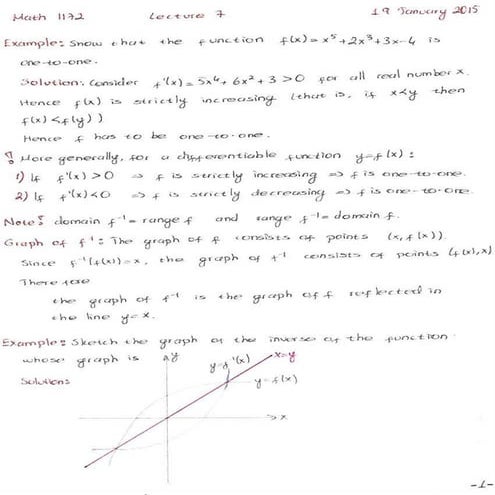 Math 1172 Lecture 7 19 January 2015
Example: Show that the function f(x)=x⁵+2x³+3x-4 is
one-to-one.
Solution: Consider f'(x)=5x⁴+6x²+3>0 for all real number x.
Hence f(x) is strictly increasing (that is, if x<y then
f(x)<f(y))
Hence f has to be one-to-one.
More generally, for a differentiable function y=f(x):
1) If f'(x)>0 ⇒ f is strictly increasing ⇒ f is one-to-one.
2) If f'(x)<0 ⇒ f is strictly decreasing ⇒ f is one-to-one.
Note: domain f⁻¹=range f and range f⁻¹=domain f.
Graph of f⁻¹: The graph of f consists of points (x,f(x)).
Since f⁻¹(f(x))=x, the graph of f⁻¹ consists of points (f(x),x)
Therefore
the graph of f⁻¹ is the graph of f reflected in
the line y=x.
Example: Sketch the graph of the inverse of the function
whose graph is
Solution:
y
y=f⁻¹(x)
x=y
y=f(x)
x
-1-